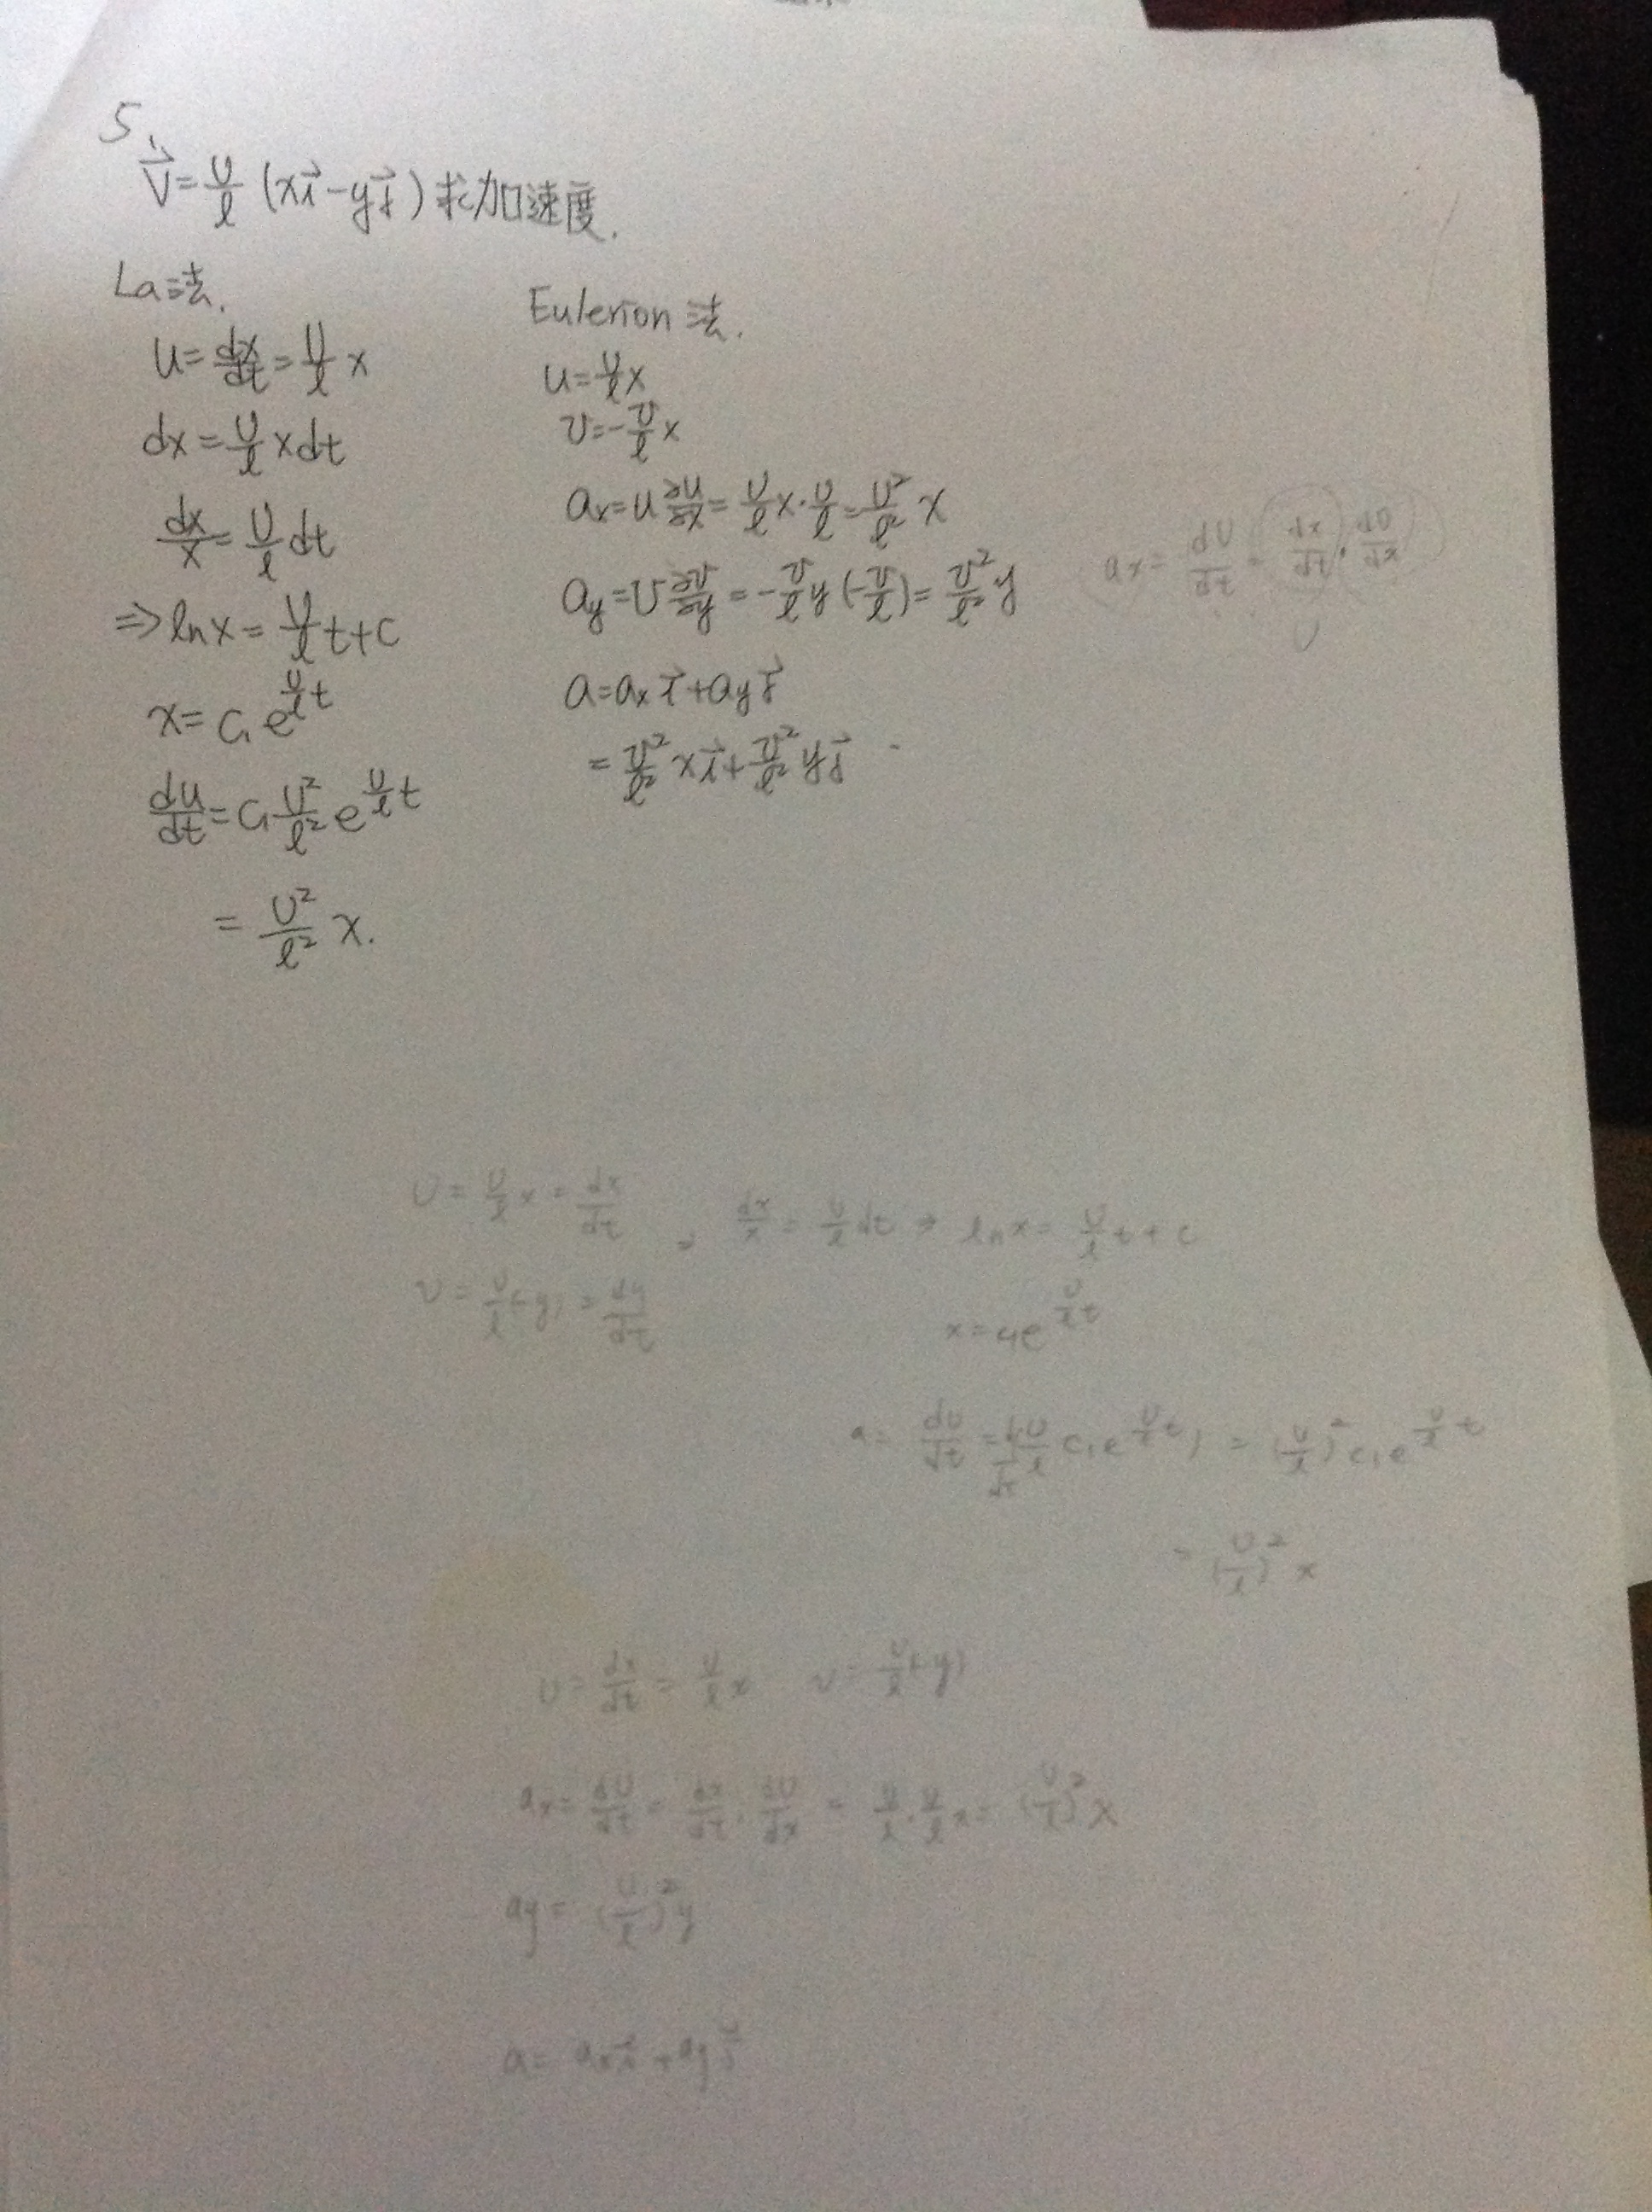 5.
V⃗=U/l (xi⃗-yj⃗) 求加速度.
La法.
u=dx/dt=U/l x
dx=U/l xdt
dx/x=U/l dt
⇒lnx=U/l t+c
x=c₁e^(U/l t)
du/dt=c₁ U²/l² e^(U/l t)
=U²/l² x.
Eulerion法.
u=U/l x
v=-U/l x
ax=u ∂u/∂x=U/l x·U/l=U²/l² x
ay=v ∂v/∂y=-U/l y(-U/l)=U²/l² y
a=ax i⃗+ay j⃗
=U²/l² xi⃗+U²/l² yj⃗
ax=dU/dt=dx/dt·dU/dx
U
U=U/l x=dx/dt, dx/x=U/l dt⇒lnx=U/l t+c
v=U/l(-y)=dy/dt
x=c₁e^(U/l t)
a=du/dt=d/dt(U/l c₁e^(U/l t))=(U/l)²c₁e^(U/l t)
=(U/l)² x
U=dx/dt=U/l x v=U/l(-y)
ax=dU/dt=dx/dt·dU/dx=U/l·U/l x=(U/l)²x
ay=(U/l)²y
a=ax i⃗+ay j⃗